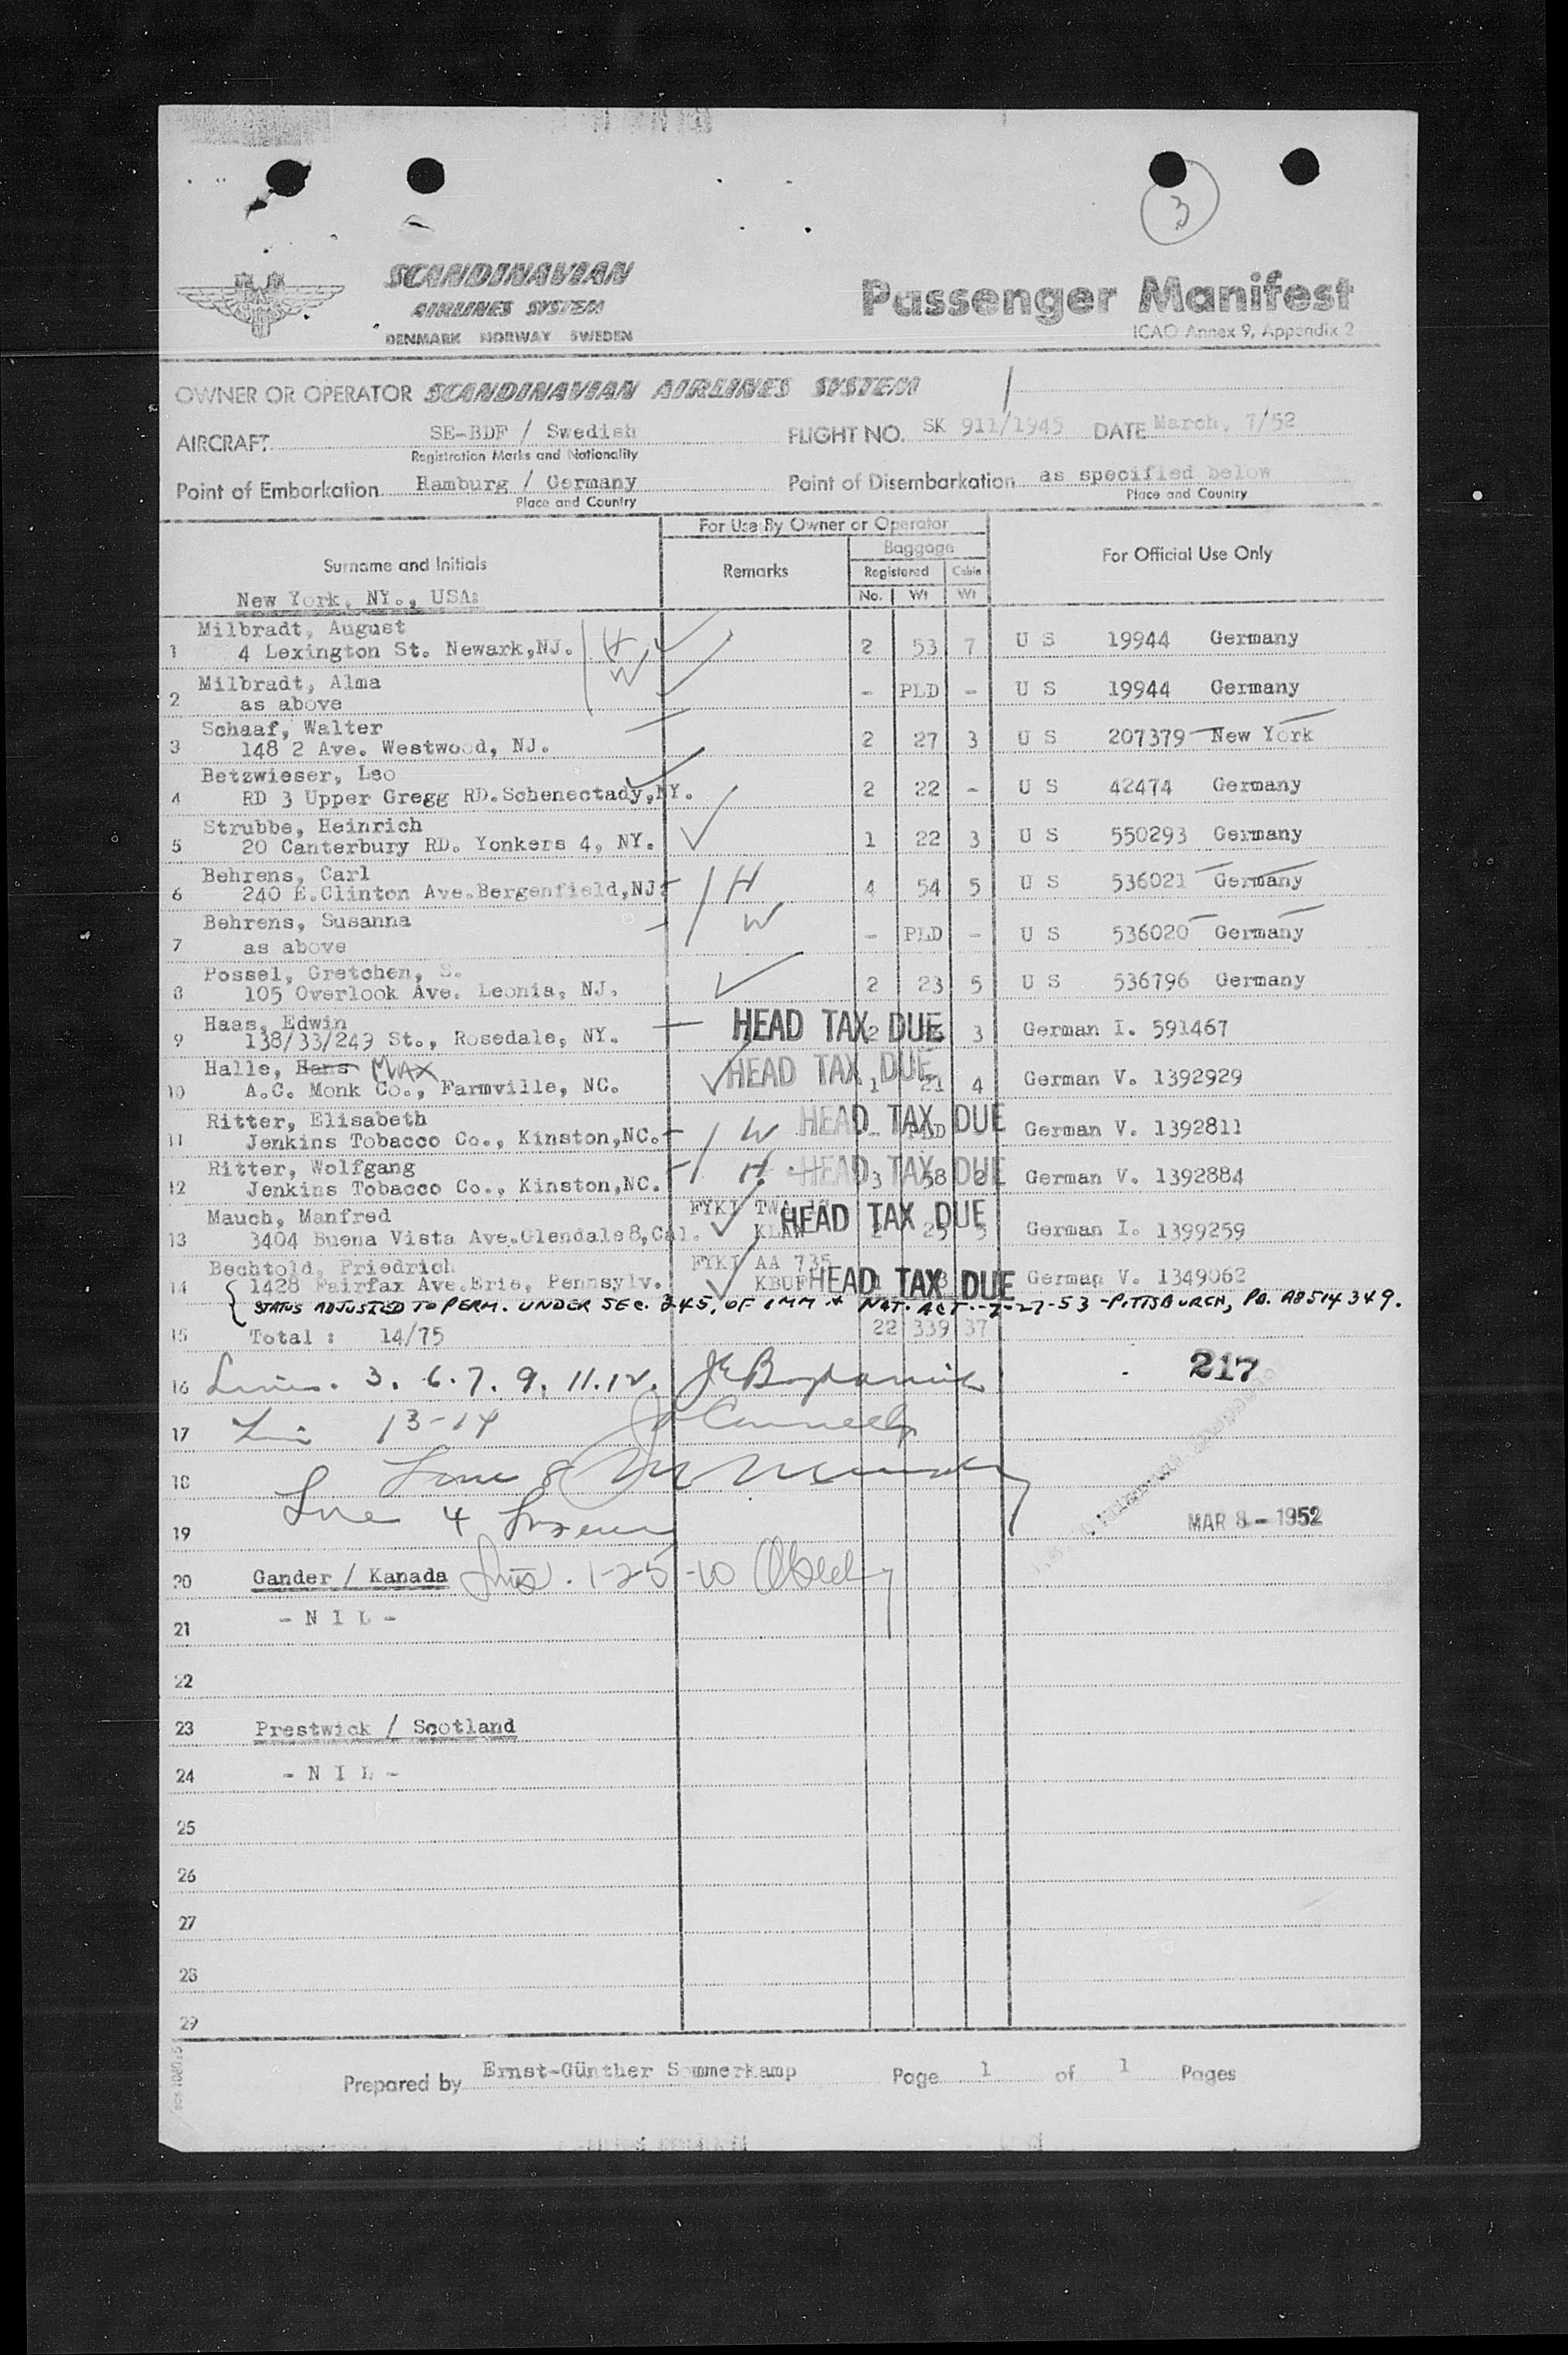 3
SCANDINAVIAN
AIRLINES SYSTEM
DENMARK NORWAY SWEDEN
Passenger Manifest
ICAO Annex 9, Appendix 2
OWNER OR OPERATOR SCANDINAVIAN AIRLINES SYSTEM
AIRCRAFT SE-BDF / Swedish FLIGHT NO. SK 911/1945 DATE March, 7/52
Registration Marks and Nationality
Point of Embarkation Hamburg / Germany Point of Disembarkation as specified below
Place and Country Place and Country
For Use By Owner or Operator
Surname and Initials Remarks Baggage For Official Use Only
Registered Cabin
New York, NY., USA: No. Wt Wt
Milbradt, August
1 4 Lexington St. Newark,NJ. H 2 53 7 U S 19944 Germany
W
Milbradt, Alma
2 as above - PLD - U S 19944 Germany
Schaaf, Walter
3 148 2 Ave. Westwood, NJ. 2 27 3 U S 207379 New York
Betzwieser, Leo
4 RD 3 Upper Gregg RD.Schenectady,NY. 2 22 - U S 42474 Germany
Strubbe, Heinrich
5 20 Canterbury RD. Yonkers 4, NY. 1 22 3 U S 550293 Germany
Behrens, Carl
6 240 E.Clinton Ave.Bergenfield,NJ. H 4 54 5 U S 536021 Germany
Behrens, Susanna
7 as above W - PLD - U S 536020 Germany
Possel, Gretchen, S.
8 105 Overlook Ave. Leonia, NJ. 2 23 5 U S 536796 Germany
Haas, Edwin
9 138/33/249 St., Rosedale, NY. HEAD TAX DUE 2 3 German I. 591467
Halle, Hans MAX
10 A.C. Monk Co., Farmville, NC. HEAD TAX DUE 1 21 4 German V. 1392929
Ritter, Elisabeth
11 Jenkins Tobacco Co., Kinston,NC. W HEAD TAX DUE - PLD German V. 1392811
Ritter, Wolfgang
12 Jenkins Tobacco Co., Kinston,NC. H HEAD TAX DUE 3 58 2 German V. 1392884
Mauch, Manfred FYKI TWA
13 3404 Buena Vista Ave.Glendale8,Cal. KLAW HEAD TAX DUE 25 5 German I. 1399259
Bechtold, Friedrich FYKI AA 735
14 1428 Fairfax Ave.Erie, Pennsylv. KBUF HEAD TAX DUE German V. 1349062
STATUS ADJUSTED TO PERM. UNDER SEC. 245, OF IMM & NAT. ACT - 7-27-53 - PITTSBURCH, PA. A8514349.
15 Total : 14/75 22 339 37
16 Lines. 3. 6. 7. 9. 11. 12. 217
17 13-14
18 Line 8
19 Line 4 MAR 8 - 1952
20 Gander / Kanada Lines. 1-2-5-10
21 - N I L -
22
23 Prestwick / Scotland
24 - N I L -
25
26
27
28
29
Prepared by Ernst-Günther Sommerkamp Page 1 of 1 Pages